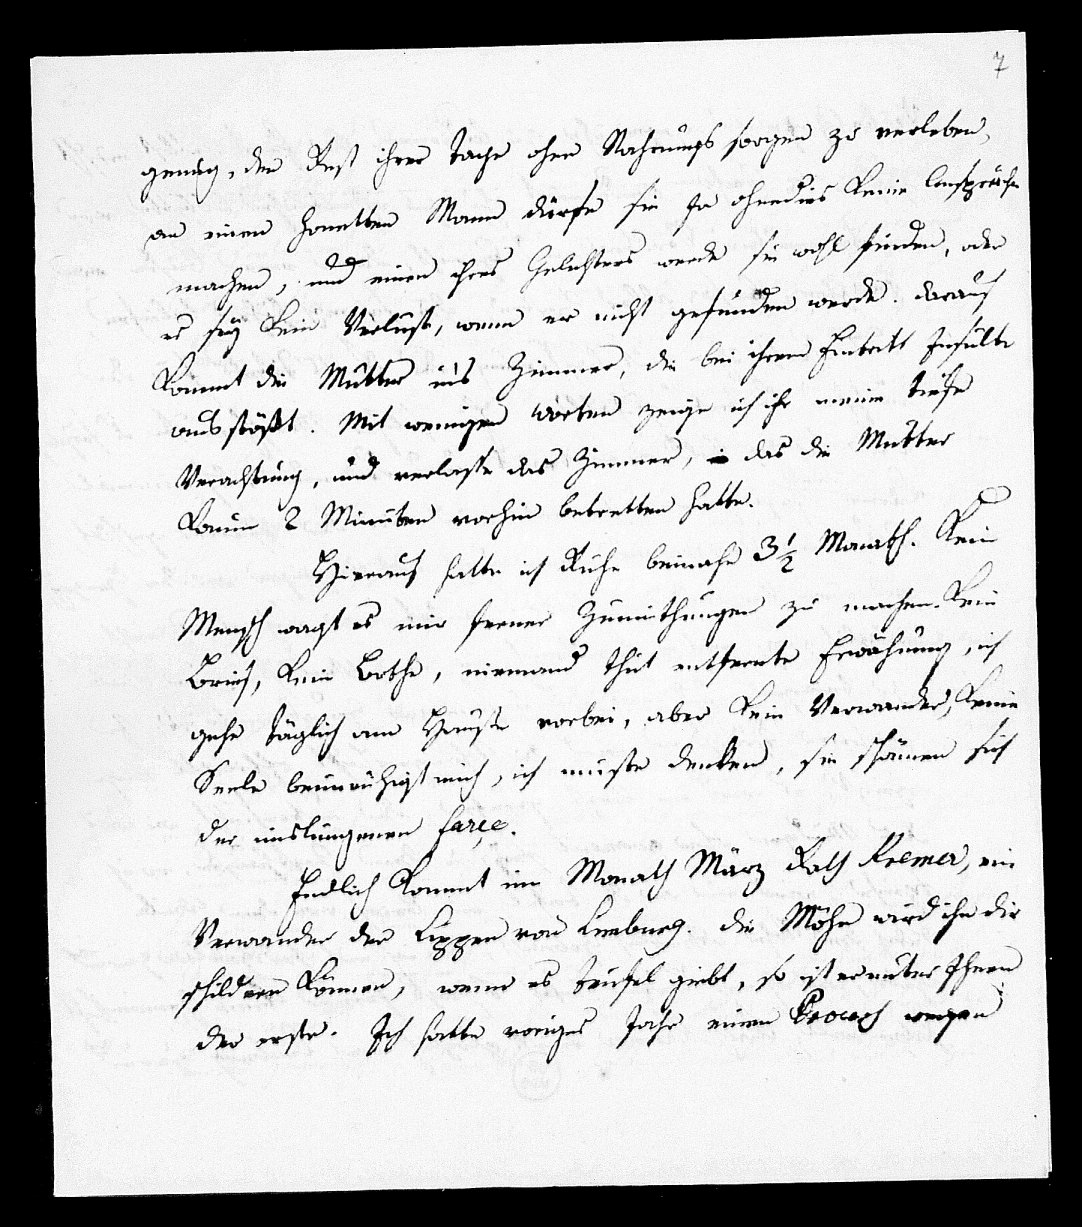 7
genug, den Rest ihrer Tage ohne Nahrungs sorgen zu verleben,
an einen honetten Mann dürfe sie ja ohnedies keine Ansprüche
machen, und einen ihres Gelichters werde sie wohl finden, oder
es sey kein Verlust, wenn er nicht gefunden werde. darauf
kömmt die Mutter ins Zimmer, die bei ihrem Eintritt Insulte
ausstößt. Mit wenigen Worten zeige ich ihr meine tiefe
Verachtung, und verlasse das Zimmer, das die Mutter
kaum 2 Minuten vorhin betretten hatte.
Hierauf hatte ich Ruhe beinahe 3½ Monath. Kein
Mensch wagt es mir ferner Zumuthungen zu machen. Kein
Brief, kein Bothe, niemand thut entfernte Erwähnung, ich
gehe täglich am Hause vorbei, aber kein Verwander, keine
Seele beunruhigt mich, ich mußte denken, sie schämen sich
der mislungenen farçe.
Endlich kommt im Monath März Rath Kremer, ein
Verwander der Lippen von Limburg. die Möhn wird ihn dir
schildren können, wenn es Teufel giebt, so ist er unter Ihnen
der erste. Ich hatte voriges Jahr einen Proceß wegen